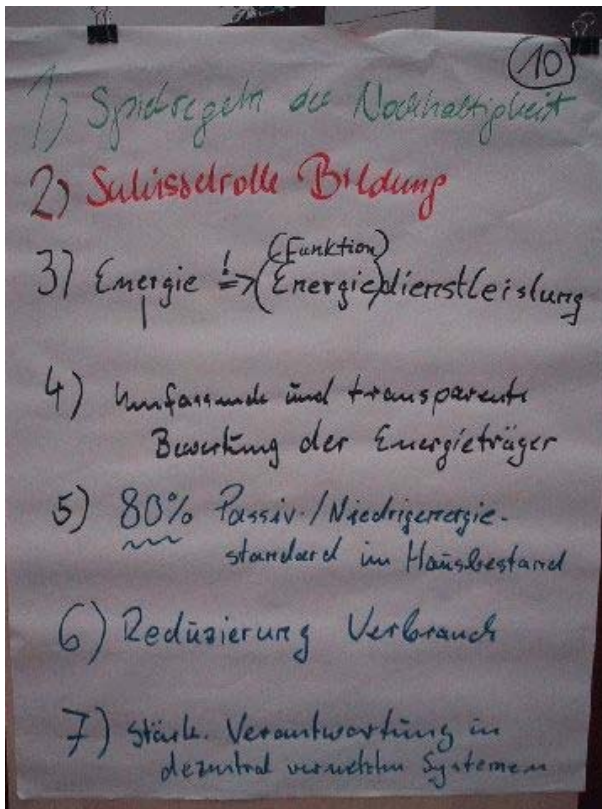 10
1) Spielregeln der Nachhaltigkeit
2) Schlüsselrolle Bildung
(Funktion)
3) Energie !=> (Energie)dienstleistung
4) Umfassende und transparente
Bewertung der Energieträger
5) 80% Passiv-/Niedrigenergie-
standard im Hausbestand
6) Reduzierung Verbrauch
7) Stärk. Verantwortung in
dezentral vernetzten Systemen